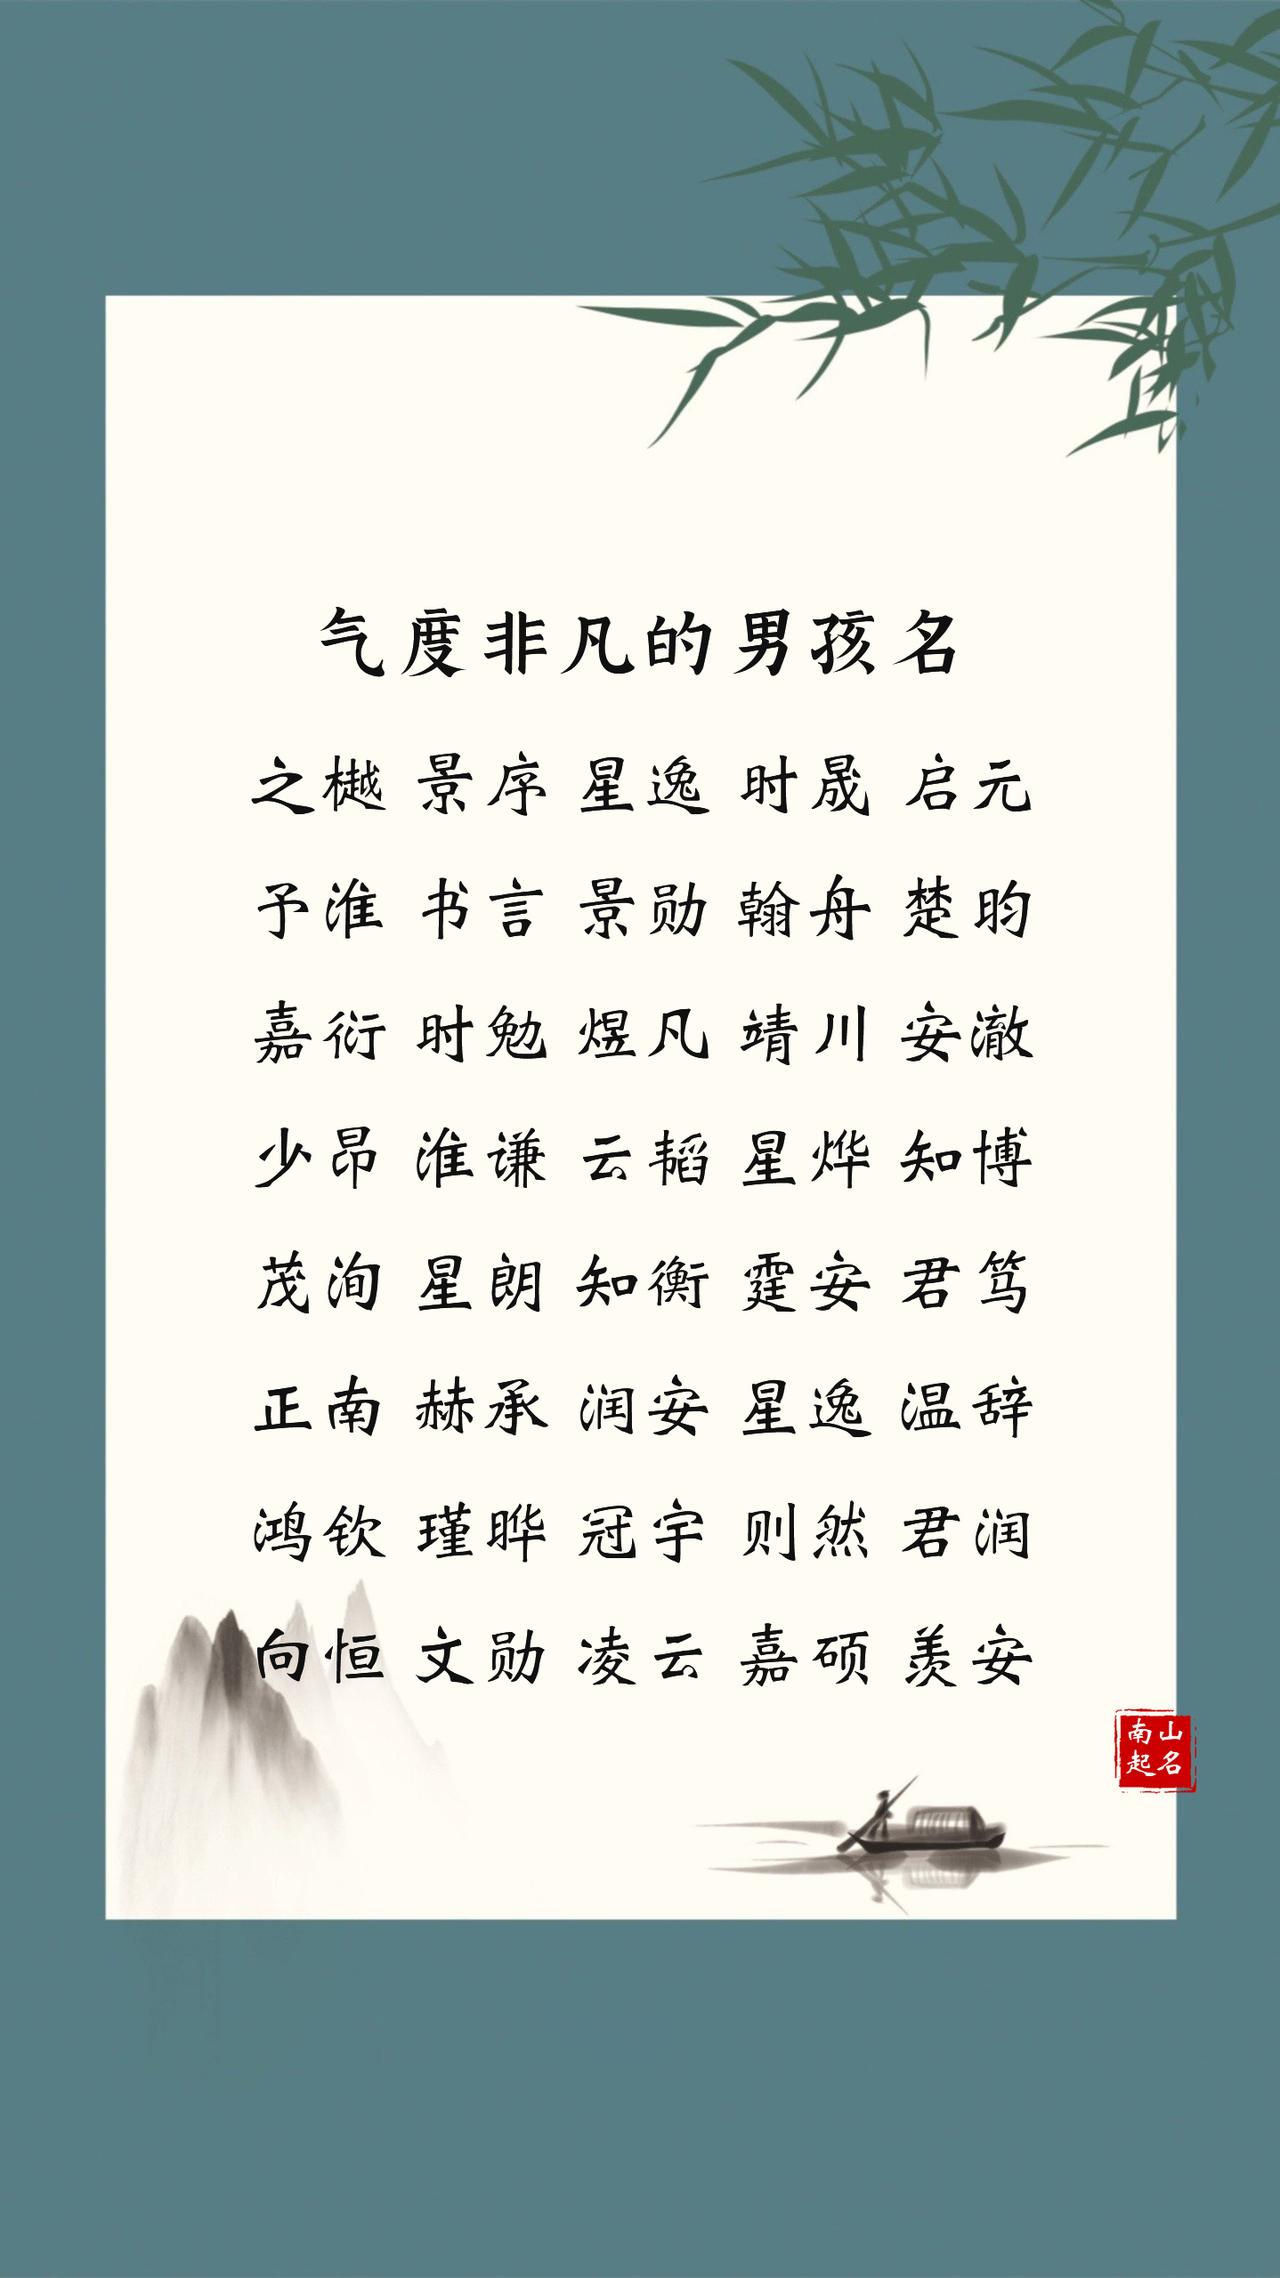 气度非凡的男孩名
之樾 景序 星逸 时晟 启元
予淮 书言 景勋 翰舟 楚昀
嘉衍 时勉 煜凡 靖川 安澈
少昂 淮谦 云韬 星烨 知博
茂洵 星朗 知衡 霆安 君笃
正南 赫承 润安 星逸 温辞
鸿钦 瑾晔 冠宇 则然 君润
向恒 文勋 凌云 嘉硕 羡安
南山
起名